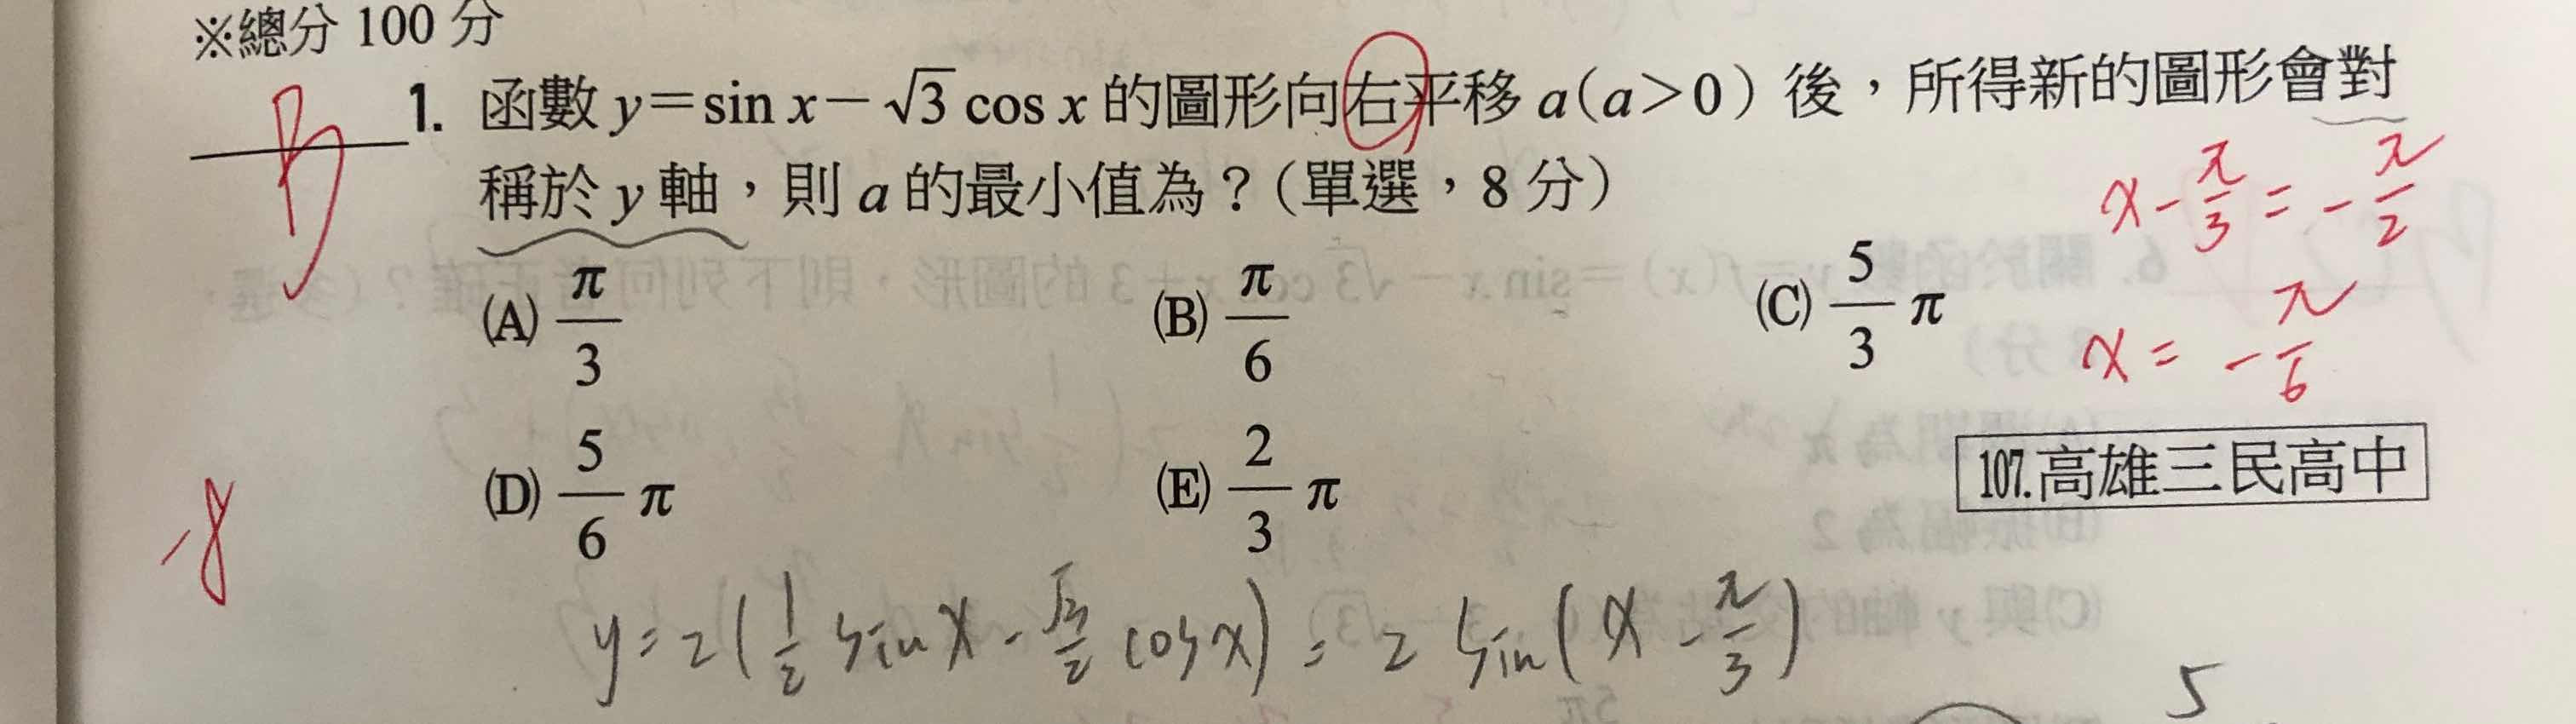 ※總分 100 分
B 1. 函數 y=sin x−√3 cos x 的圖形向右平移 a(a>0) 後，所得新的圖形會對
稱於 y 軸，則 a 的最小值為？(單選，8 分)
x - π/3 = - π/2
(A) π/3 (B) π/6 (C) 5/3 π
x = - π/6
(D) 5/6 π (E) 2/3 π
107.高雄三民高中
-8
y = 2(1/2 sin x - √3/2 cos x) = 2 sin(x - π/3)
5